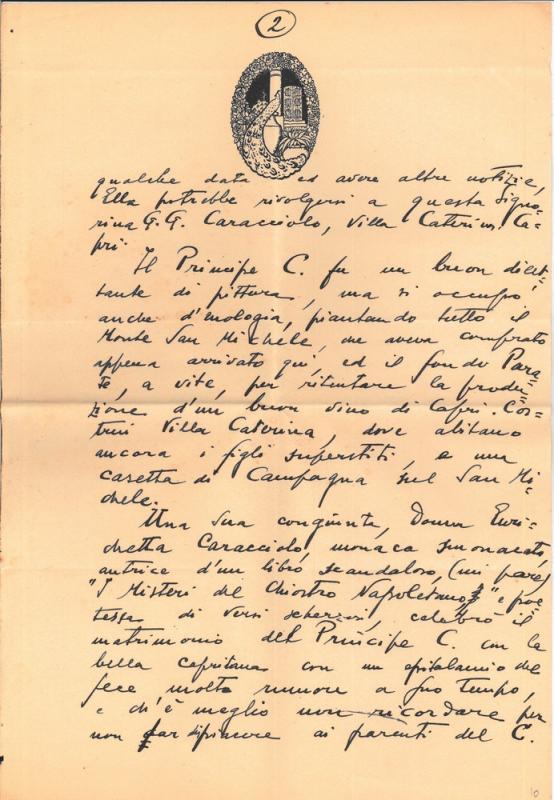 2
qualche data ed avere altre notizie,
Ella potrebbe rivolgersi a questa Signo-
rina G. G. Caracciolo, Villa Caterina. Ca-
pri.
Il Principe C. fu un buon dilet-
tante di pittura, ma si occupò
anche d'enologia, piantando tutto il
Monte San Michele, che aveva comprato
appena arrivato qui, ed il fondo Para-
te, a vite, per ritentare la produ-
zione d'un buon vino di Capri. Cos-
truì Villa Caterina, dove abitano
ancora i figli superstiti, e una
casetta di Campagna sul San Mi-
chele.
Una sua congiunta, Donna Enri-
chetta Caracciolo, monaca smonacata,
autrice d'un libro scandaloso, (mi pare,
"I Misteri del Chiostro Napoletano," e poe-
tessa di versi scherzosi, celebrò il
matrimonio del Principe C. con la
bella capritana con un epitalamio che
fece molto rumore a suo tempo,
e ch'è meglio non ricordare per
non far dispiacere ai parenti del C.
10